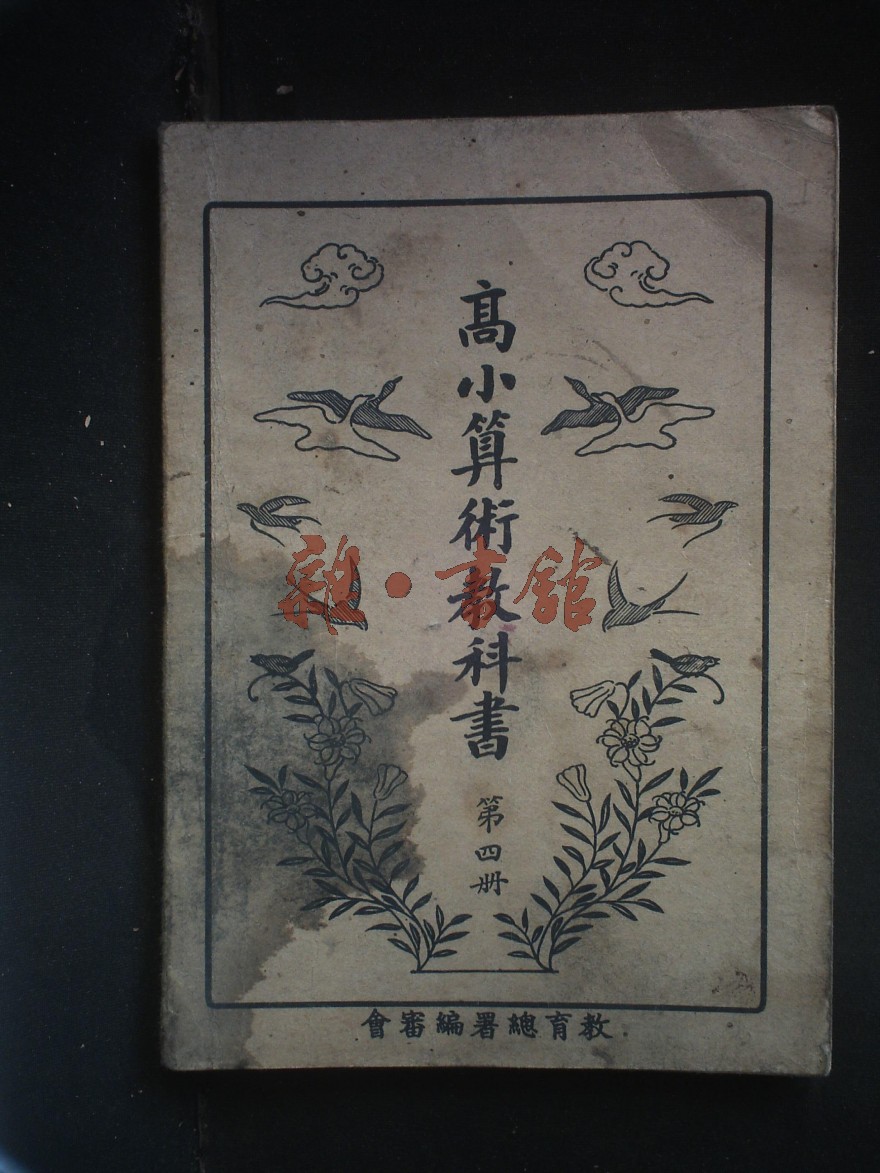 高小算術教科書
第四册
教育總署編審會
雜·書舘